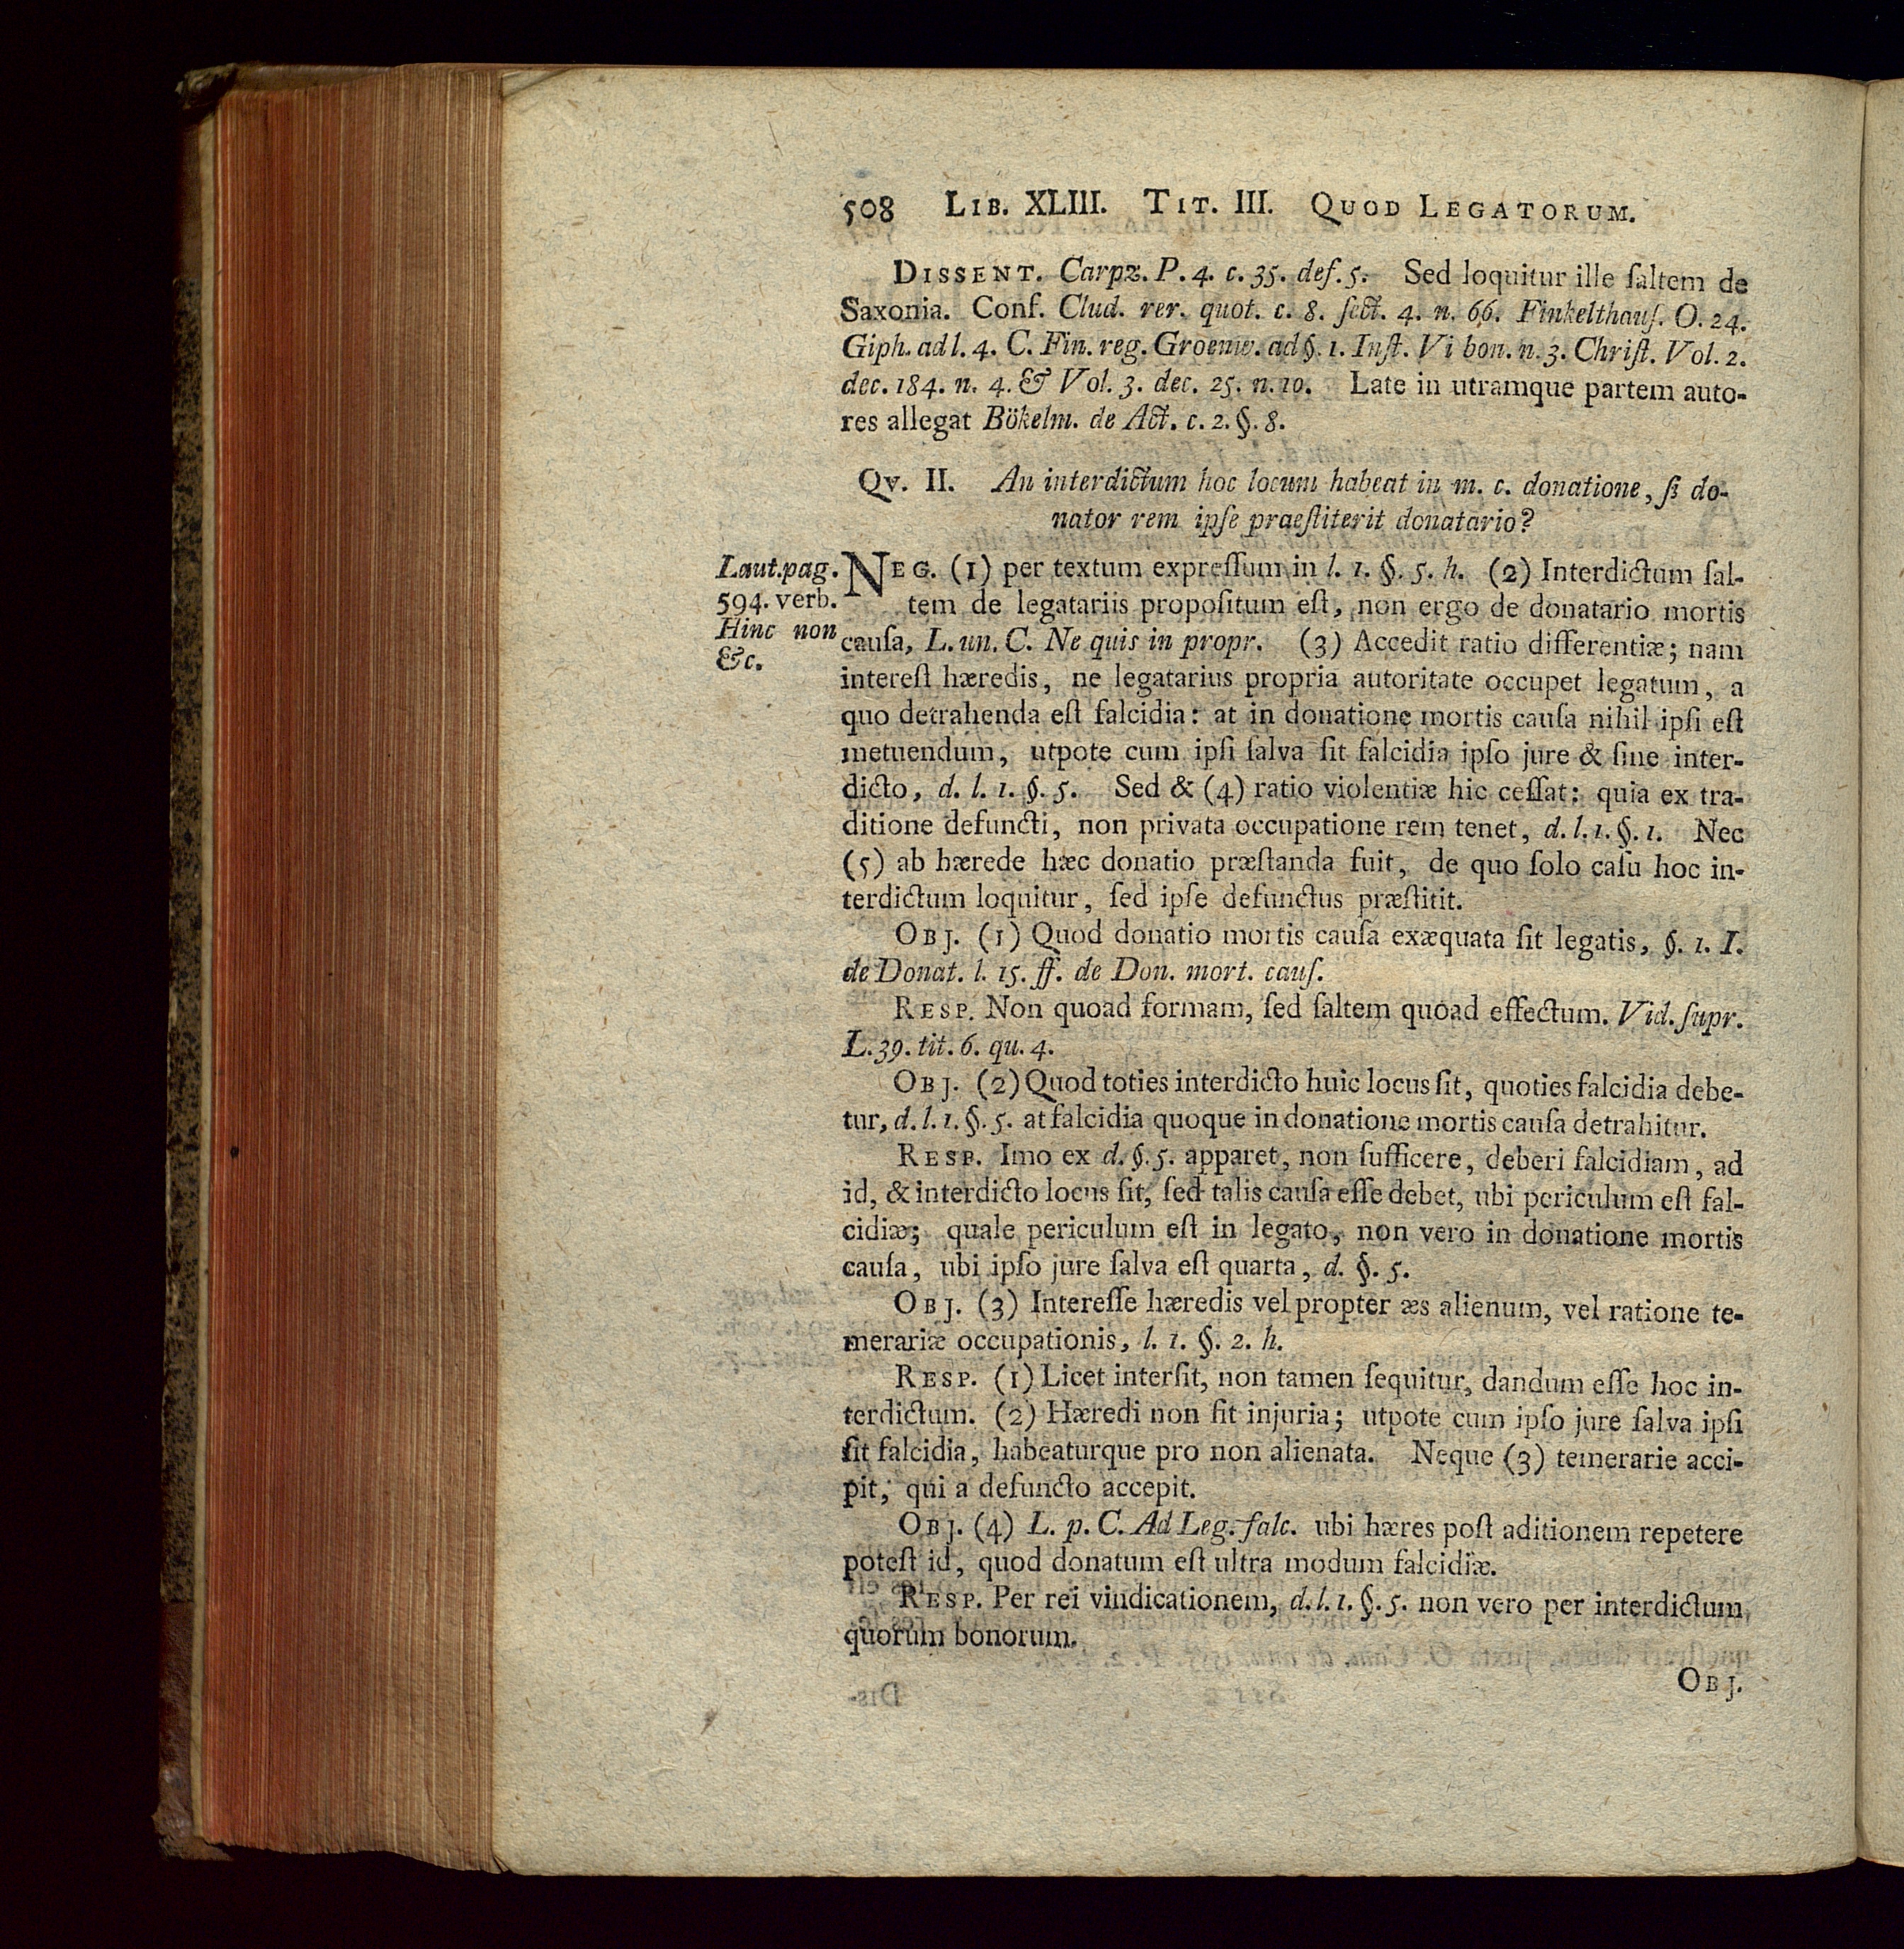 508 LIB. XLIII. TIT. III. QUOD LEGATORUM.
DISSENT. Carpz. P. 4. c. 35. def. 5. Sed loquitur ille ſaltem de
Saxonia. Conf. Clud. rer. quot. c. 8. ſect. 4. n. 66. Finkelthauſ. O. 24.
Giph. ad l. 4. C. Fin. reg. Groenw. ad §. 1. Inſt. Vi bon. n. 3. Chriſt. Vol. 2.
dec. 184. n. 4. & Vol. 3. dec. 25. n. 10. Late in utramque partem auto-
res allegat Bökelm. de Act. c. 2. §. 8.
Qv. II. An interdictum hoc locum habeat in m. c. donatione, ſi do-
nator rem ipſe praeſtiterit donatario?
Laut. pag.
594. verb.
Hinc non
&c.
NEG. (1) per textum expreſſum in l. 1. §. 5. h. (2) Interdictum ſal-
tem de legatariis propoſitum eſt, non ergo de donatario mortis
cauſa, L. un. C. Ne quis in propr. (3) Accedit ratio differentiæ; nam
intereſt hæredis, ne legatarius propria autoritate occupet legatum, a
quo detrahenda eſt falcidia: at in donatione mortis cauſa nihil ipſi eſt
metuendum, utpote cum ipſi ſalva ſit falcidia ipſo jure & ſine inter-
dicto, d. l. 1. §. 5. Sed & (4) ratio violentiæ hic ceſſat: quia ex tra-
ditione defuncti, non privata occupatione rem tenet, d. l. 1. §. 1. Nec
(5) ab hærede hæc donatio præſtanda fuit, de quo ſolo caſu hoc in-
terdictum loquitur, ſed ipſe defunctus præſtitit.
OBJ. (1) Quod donatio mortis cauſa exæquata ſit legatis, §. 1. I.
de Donat. l. 15. ff. de Don. mort. cauſ.
RESP. Non quoad formam, ſed ſaltem quoad effectum. Vid. ſupr.
L. 39. tit. 6. qu. 4.
OBJ. (2) Quod toties interdicto huic locus ſit, quoties falcidia debe-
tur, d. l. 1. §. 5. at falcidia quoque in donatione mortis cauſa detrahitur.
RESP. Imo ex d. §. 5. apparet, non ſufficere, deberi falcidiam, ad
id, & interdicto locus ſit, ſed talis cauſa eſſe debet, ubi periculum eſt fal-
cidiæ; quale periculum eſt in legato, non vero in donatione mortis
cauſa, ubi ipſo jure ſalva eſt quarta, d. §. 5.
OBJ. (3) Intereſſe hæredis vel propter æs alienum, vel ratione te-
merariæ occupationis, l. 1. §. 2. h.
RESP. (1) Licet interſit, non tamen ſequitur, dandum eſſe hoc in-
terdictum. (2) Hæredi non fit injuria; utpote cum ipſo jure ſalva ipſi
ſit falcidia, habeaturque pro non alienata. Neque (3) temerarie acci-
pit, qui a defuncto accepit.
OBJ. (4) L. p. C. Ad Leg. falc. ubi hæres poſt aditionem repetere
poteſt id, quod donatum eſt ultra modum falcidiæ.
RESP. Per rei vindicationem, d. l. 1. §. 5. non vero per interdictum
quorum bonorum.
OBJ.